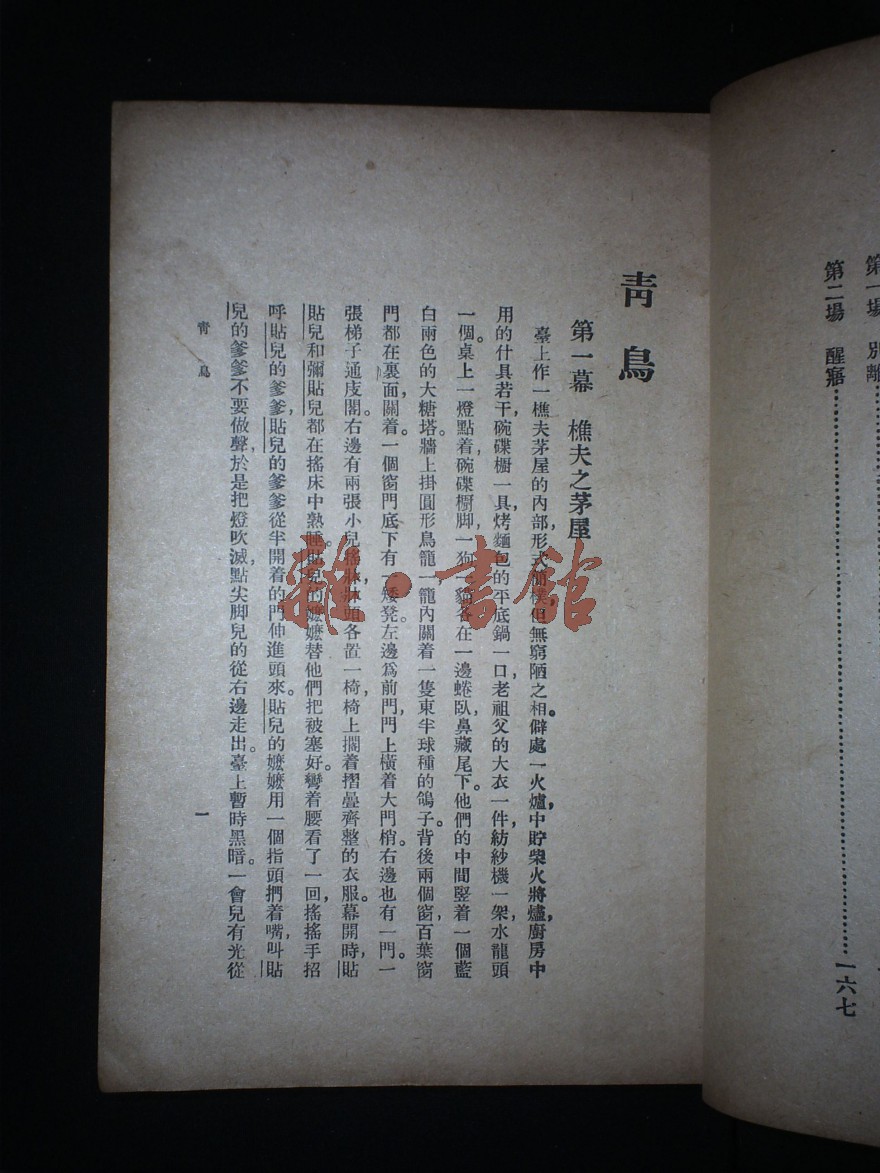 第一場　別離
第二場　醒寤……一六七
青鳥
第一幕　樵夫之茅屋
臺上作一樵夫茅屋的內部形式簡樸，但無窮陋之相。僻處一火爐，中貯柴火將燼，廚房中
用的什具若干，碗碟櫥一具，烤麵包的平底鍋一口，老祖父的大衣一件，紡紗機一架，水龍頭
一個。桌上一燈點着，碗碟櫥脚，一狗一貓各在一邊蜷臥，鼻藏尾下。他們的中間竪着一個藍
白兩色的大糖塔。牆上掛圓形鳥籠一，籠內關着一隻東半球種的鴿子。背後兩個窗，百葉窗
門都在裏面，關着。一個窗門底下有一矮凳。左邊爲前門，門上橫着大門梢。右邊也有一門。一
張梯子通庋閣。右邊有兩張小兒搖牀，牀頭各置一椅，椅上擱着摺疊齊整的衣服。幕開時，貼
貼兒和彌貼兒都在搖床中熟睡。貼兒的嬤嬤替他們把被塞好。彎着腰看了一回，搖搖手招
呼貼兒的爹爹，貼兒的爹爹從半開着的門伸進頭來。貼兒的嬤嬤用一個指頭捫着嘴，叫貼
兒的爹爹不要做聲，於是把燈吹滅，點尖脚兒的從右邊走出。臺上暫時黑暗。一會兒有光從
青鳥
一
雜·書館